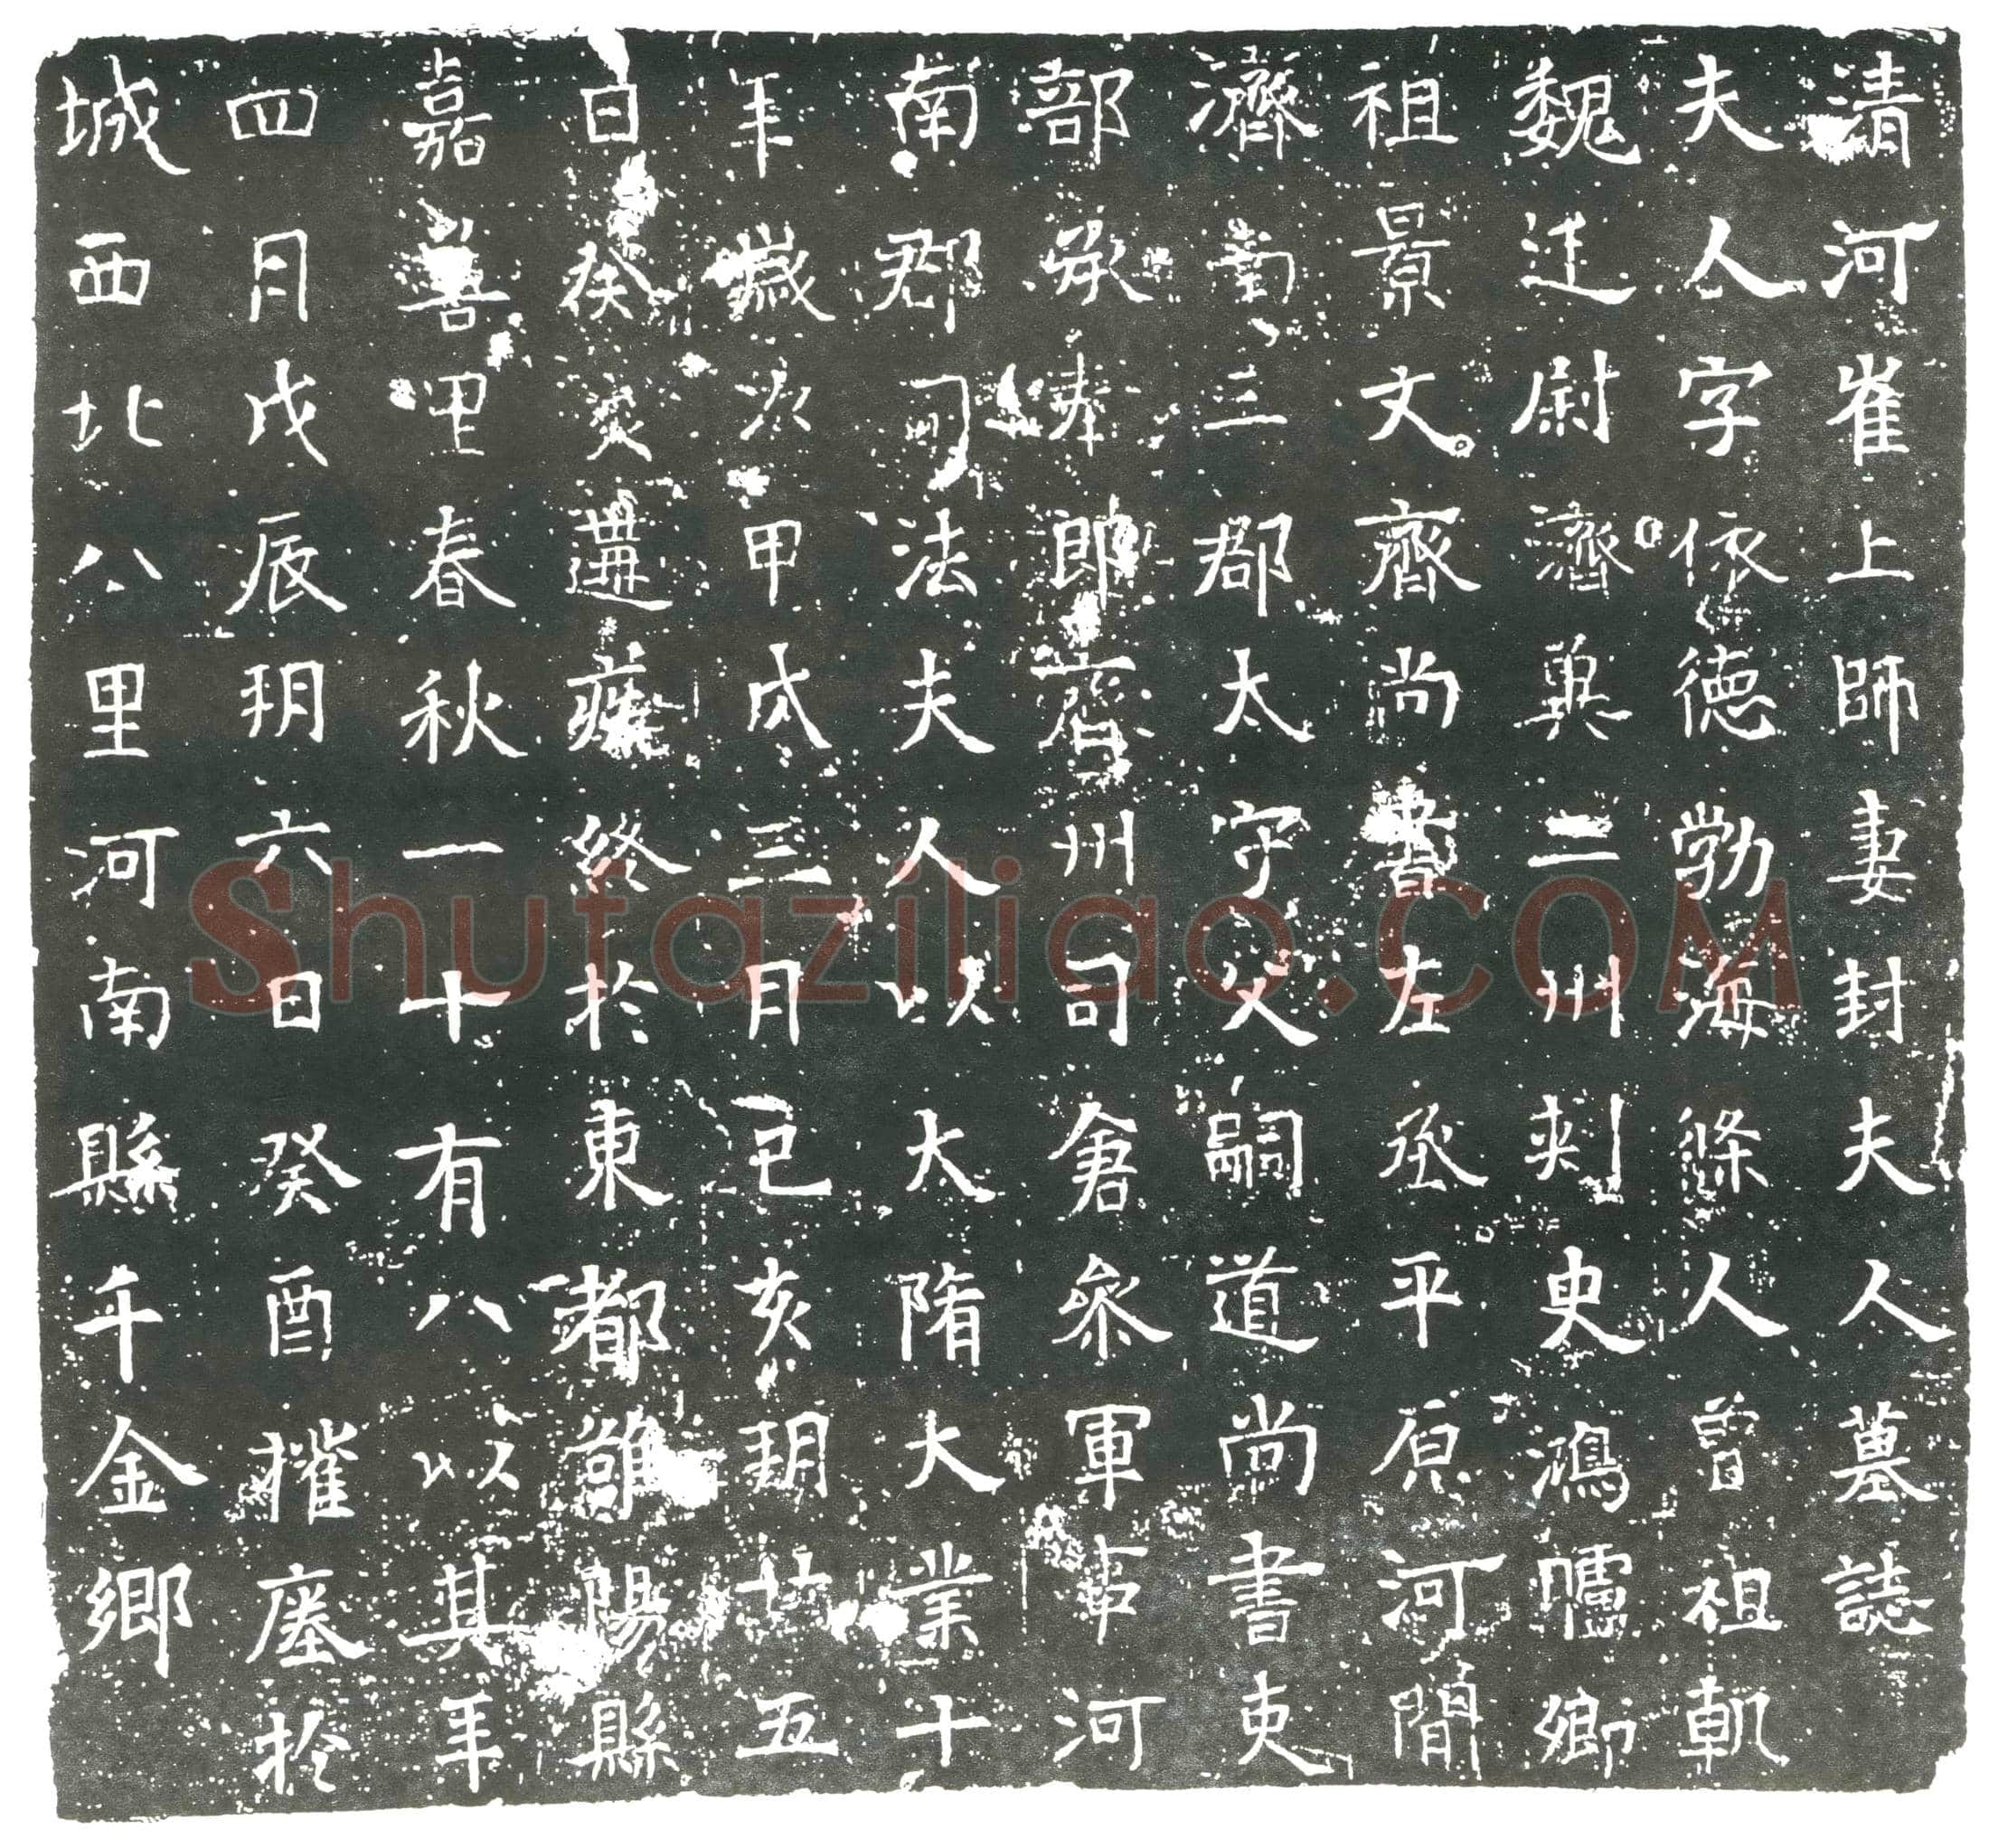 清河崔上師妻封夫人墓誌
夫人字依德勃海條人曾祖軌
魏廷尉濟冀二州刺史鴻臚卿
祖景文齊尚書左丞平原河間
濟南三郡太守父嗣道尚書吏
部承奉郎齊州司倉參軍事河
南郡司法夫人以大隋大業十
年歲次甲戌三月己亥朔廿五
日癸亥遘疾終於東都雒陽縣
嘉善里春秋一十有八以其年
四月戊辰朔六日癸酉權瘞於
城西北八里河南縣千金鄉
Shufaziliao.COM